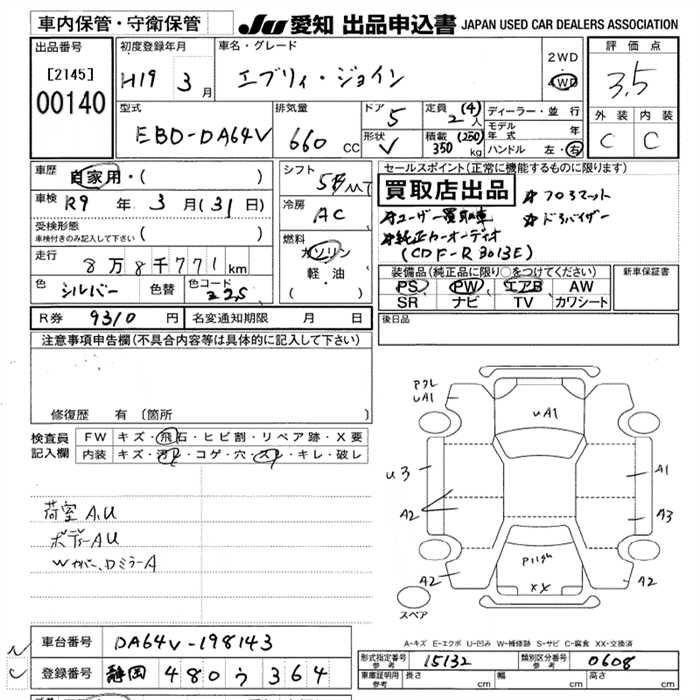 車内保管・守衛保管
JU 愛知 出品申込書 JAPAN USED CAR DEALERS ASSOCIATION
出品番号
[2145]
00140
初度登録年月
H19 3月
車名・グレード
エブリィ・ジョイン
2WD
4WD
評価点
3.5
外装 内装
C C
型式
EBD-DA64V
排気量
660 CC
ドア 5
形状 V
定員 (4) 2人
積載 (250) 350 kg
ディーラー・並行
モデル年式 年
ハンドル 左・右
車歴
自家用・( )
車検 R9 年 3 月(31日)
受検形態
車検付きのみ記入して下さい( )
走行
8万8千771km
色 シルバー 色替 色コード Z2S
シフト
5F MT
冷房
AC
燃料
ガソリン
軽・油
( )
セールスポイント(正常に機能するものに限ります)
買取店出品
☆フロアマット
☆ユーザー買取車
☆ドアバイザー
☆純正カーオーディオ
(CDF-R3013E)
装備品(純正品に限り○をつけてください)
PS PW エアB AW
SR ナビ TV カワシート
新車保証書
R券 9310 円 名変通知期限 月 日
後日品
注意事項申告欄(不具合内容等は具体的に記入して下さい)
修復歴 有(箇所
検査員記入欄
FW キズ・飛石・ヒビ割・リペア跡・X要
内装 キズ・汚レ・コゲ・穴・スレ・キレ・破レ
荷室 A,U
ボディーAU
Wカバー、ロミラーA
アクレ
UA1
UA1
U3
A1
A2
A3
A2
A2
Pリレ
XX
スペア
A-キズ E-エクボ U-凹み W-補修跡 S-サビ C-腐食 XX-交換済
車台番号 DA64V-198143
登録番号 静岡 480 う 364
形式指定番号 参考 15132
類別区分番号 参考 0608
車庫証明用参考 長さ cm 幅 cm 高さ cm